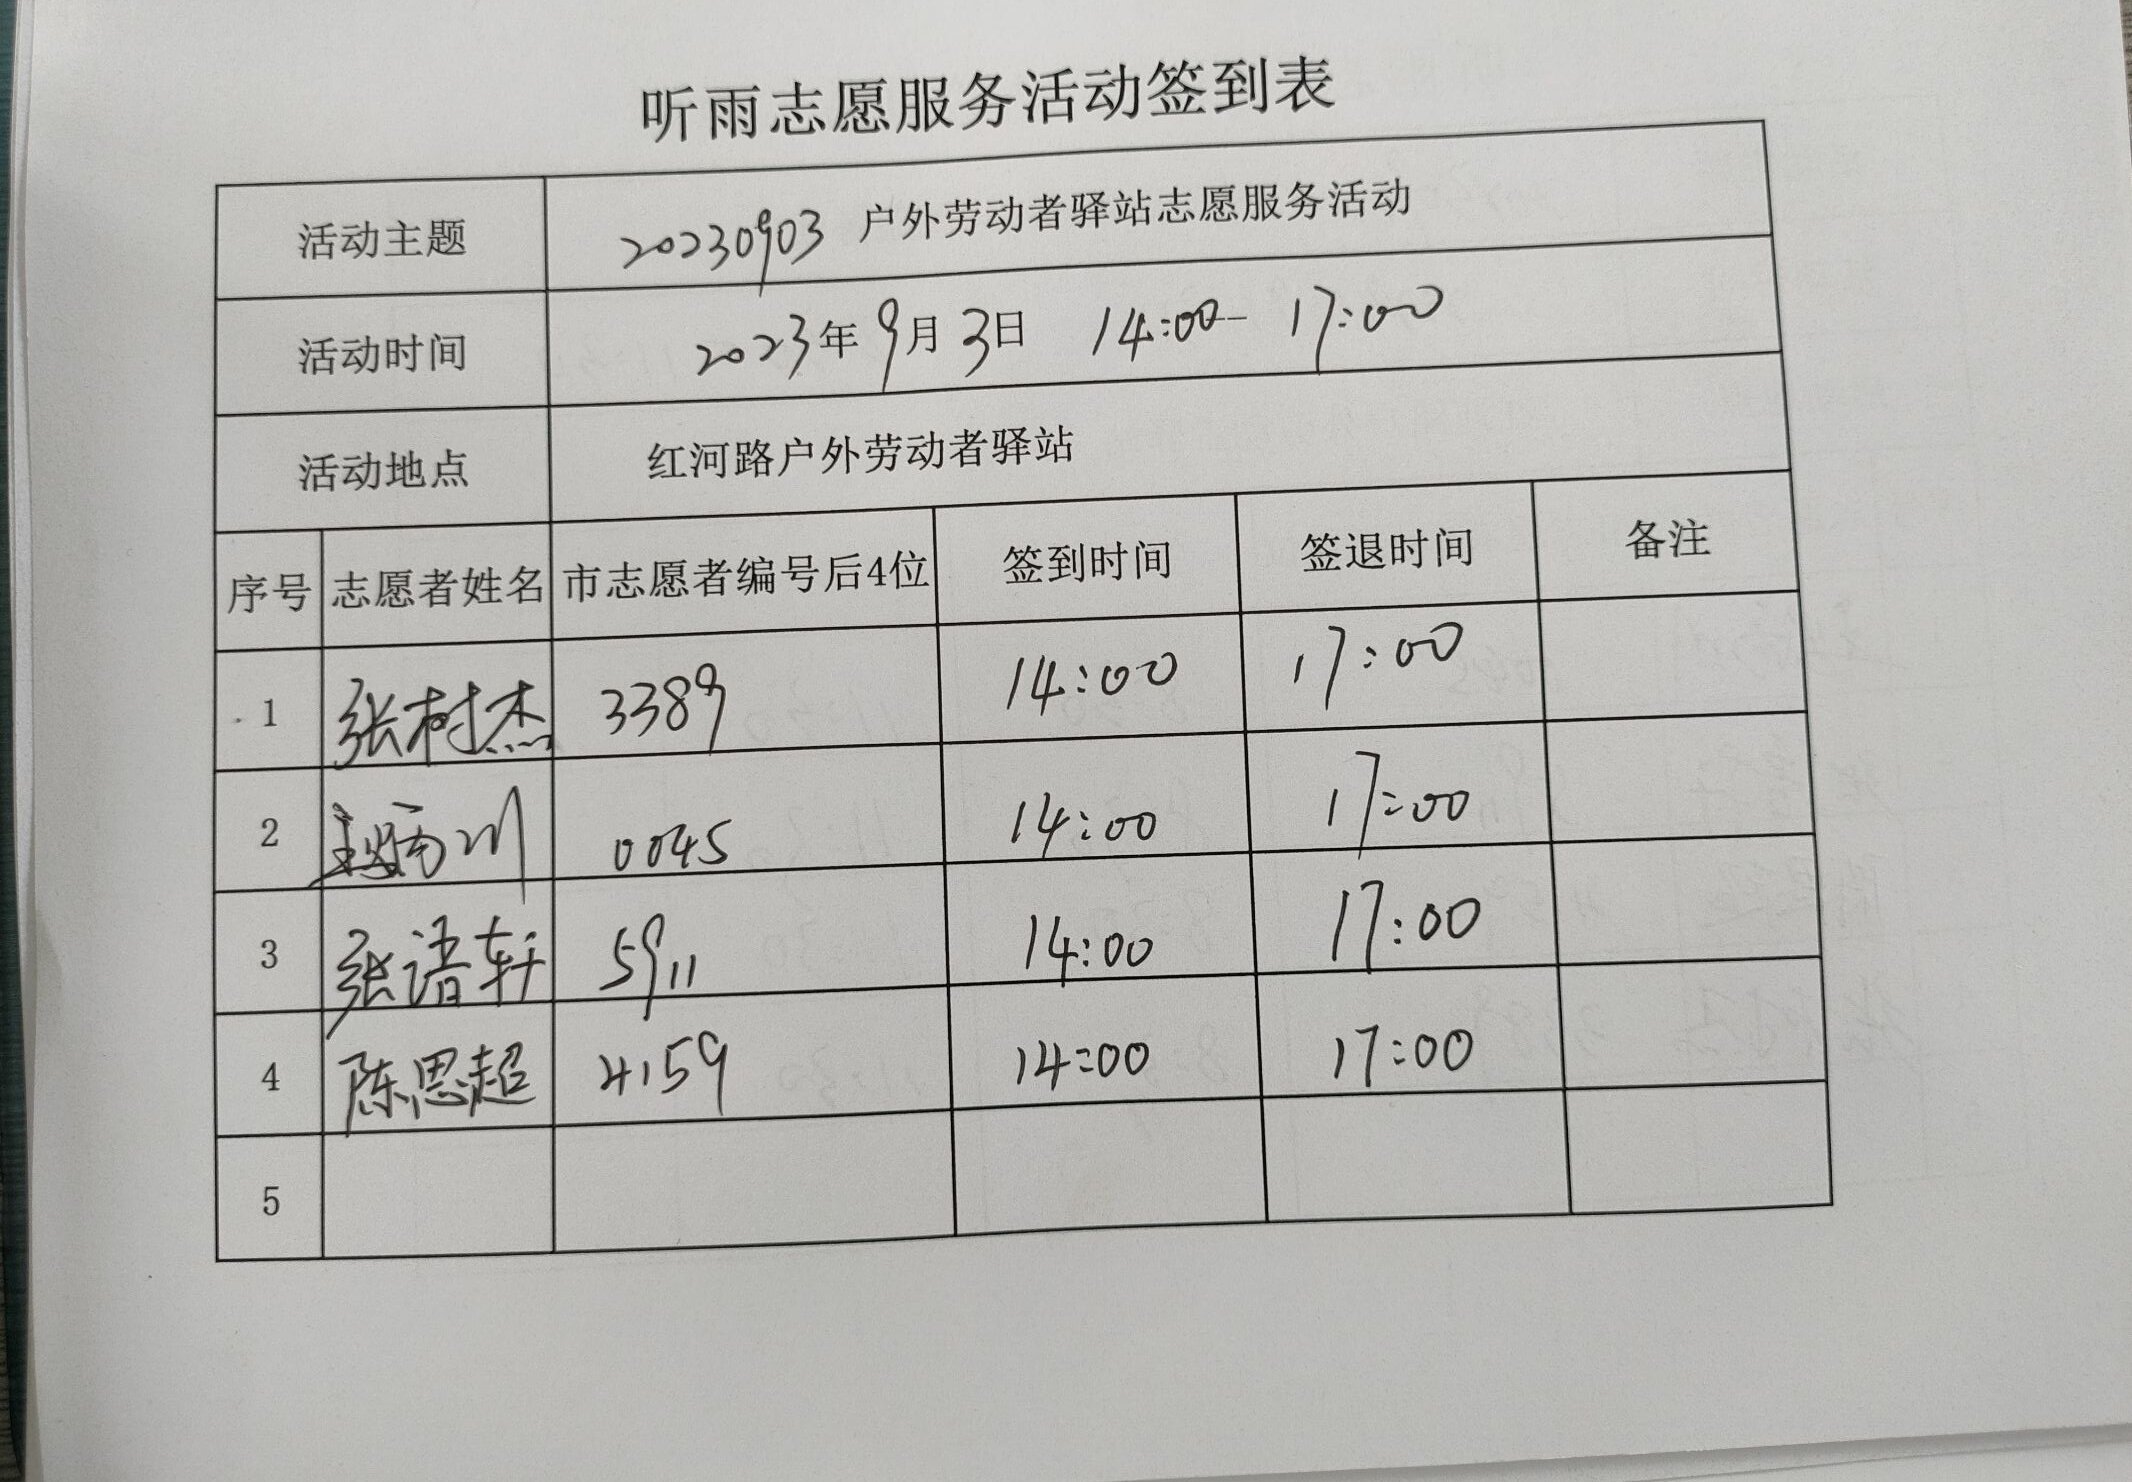 听雨志愿服务活动签到表
活动主题 20230903 户外劳动者驿站志愿服务活动
活动时间 2023年9月3日 14:00- 17:00
活动地点 红河路户外劳动者驿站
序号 志愿者姓名 市志愿者编号后4位 签到时间 签退时间 备注
1 张树杰 3389 14:00 17:00
2 0045 14:00 17:00
3 张诸轩 5911 14:00 17:00
4 陈思超 4159 14:00 17:00
5